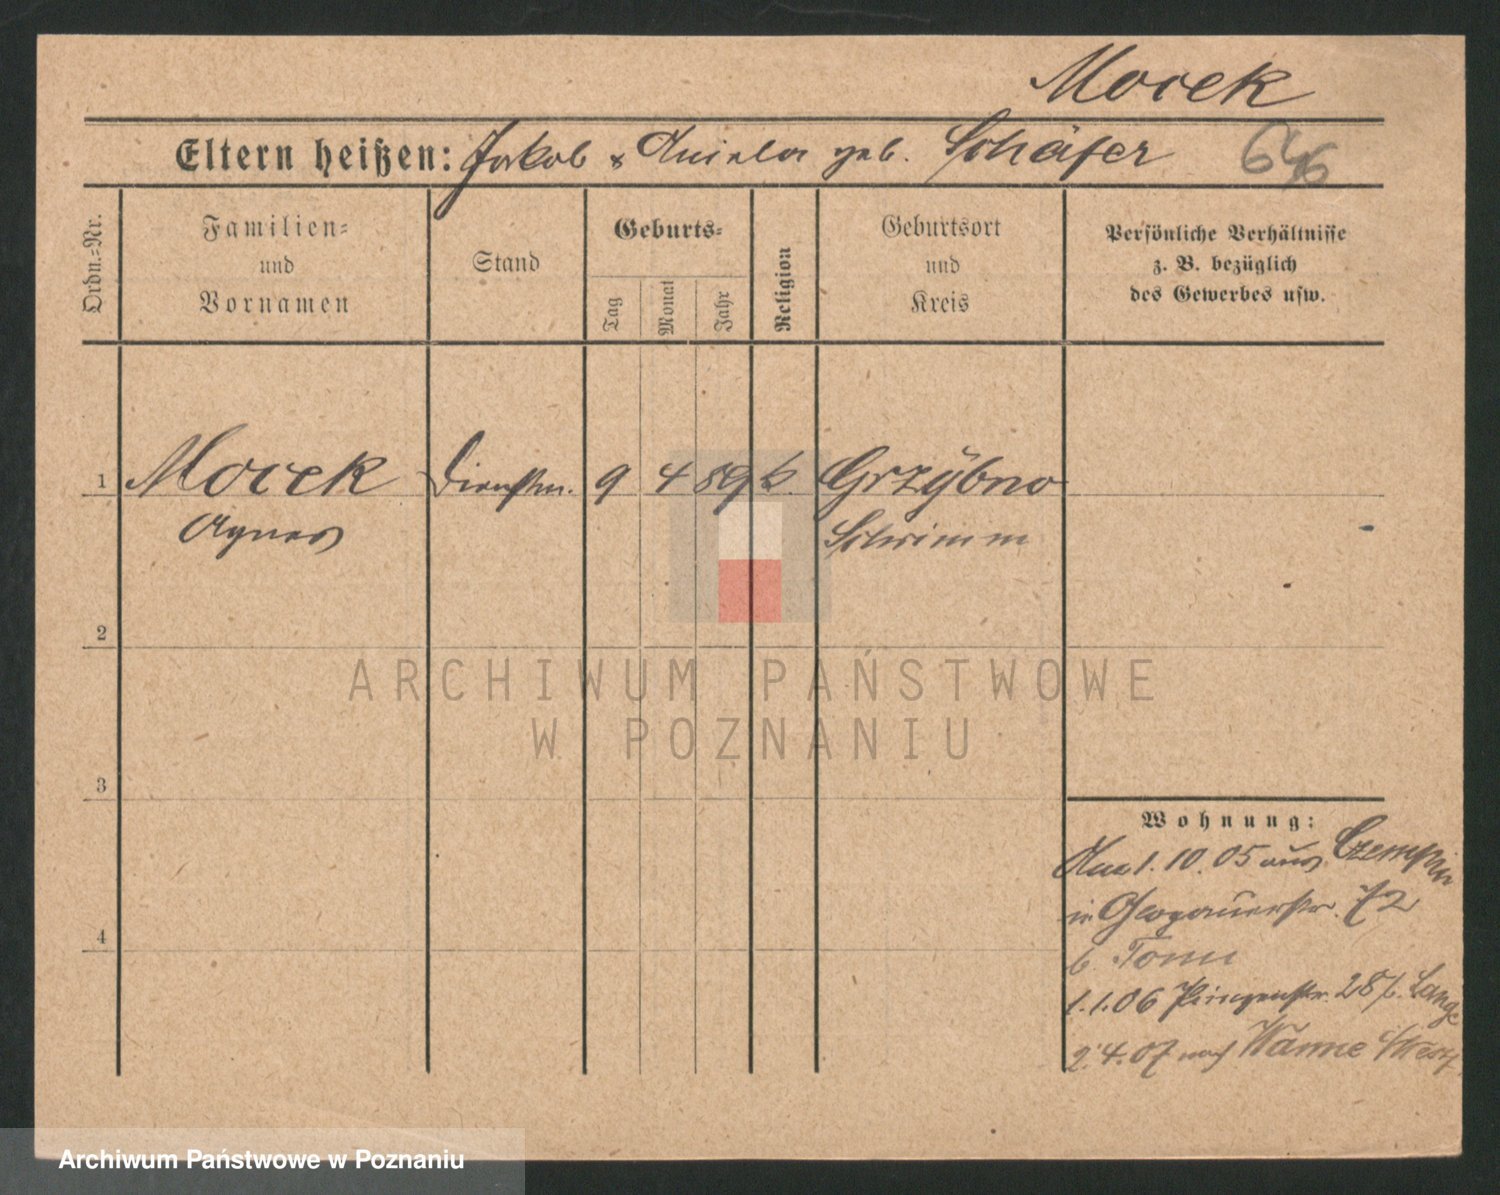 Mocek
Eltern heißen: Jakob & Aniela geb. Schäfer 646
Ordn.-Nr.
Familien-
und
Vornamen
Stand
Geburts-
Tag
Monat
Jahr
Religion
Geburtsort
und
Kreis
Persönliche Verhältnisse
z. B. bezüglich
des Gewerbes usw.
1 Mocek Dienstm. 9 4 89 k. Grzybno
Agnes Schrimm
2
ARCHIWUM PAŃSTWOWE
W POZNANIU
3
Wohnung:
1.10.05 aus Czempin
in Glogauerstr. 72
b. Tomu
1.1.06 28 b. Lange
2.4.07 nach Wanne Westf.
4
Archiwum Państwowe w Poznaniu